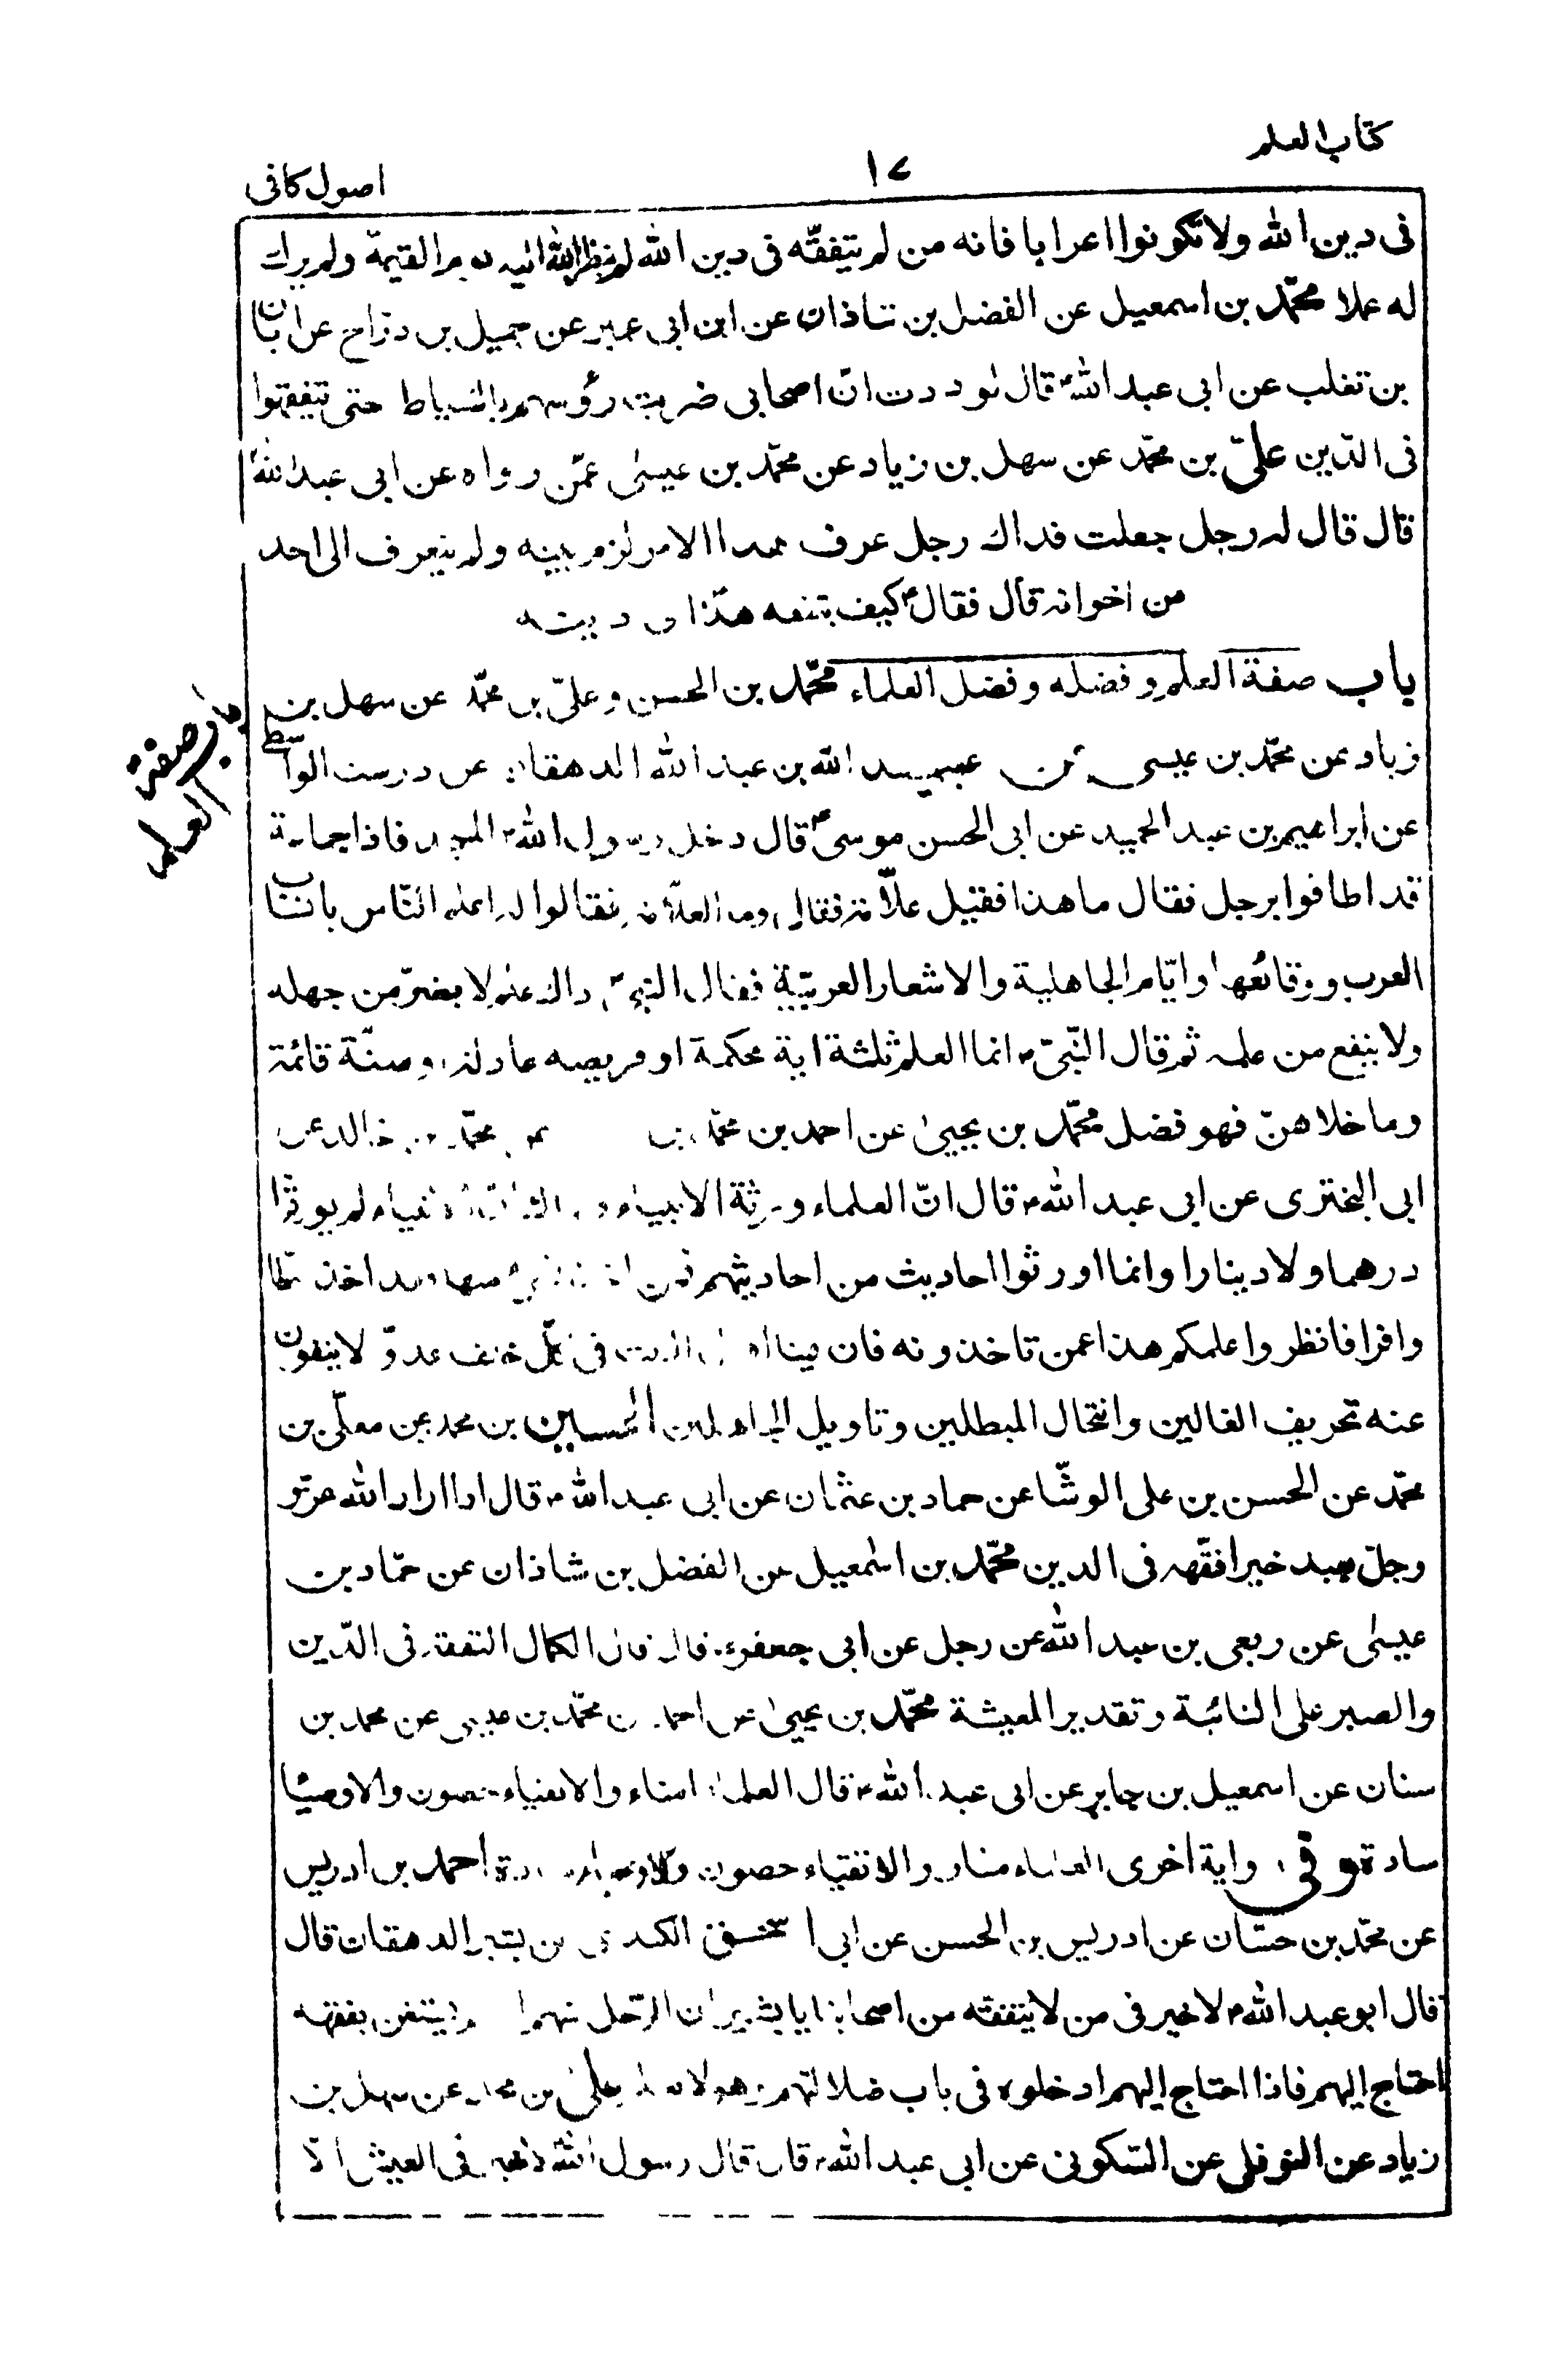 كتاب العلم
١٧
اصول كافى
فى دين الله ولا تكونوا اعرابا فانه من لم يتفقّه فى دين الله لم ينظر الله اليه يوم القيمة ولم يزك
له عملا محمّد بن اسمعيل عن الفضل بن شاذان عن ابن ابى عمير عن جميل بن دراج عن ابان
بن تغلب عن ابى عبد الله ع قال لوددت انّ اصحابى ضربت رؤسهم بالسياط حتى يتفقهوا
فى الدّين علىّ بن محمّد عن سهل بن زياد عن محمّد بن عيسى عمّن رواه عن ابى عبد الله ع
قال قال له رجل جعلت فداك رجل عرف هذا الامر لزم بيته ولم يتعرف الى احد
من اخوانه قال فقال ع كيف يتفقه هذا فى دينه
باب صفة العلم وفضله وفضل العلماء محمّد بن الحسن وعلىّ بن محمّد عن سهل بن
باب صفة
العلم
زياد عن محمّد بن عيسى عن عبيد الله بن عبد الله الدهقان عن درست الواسطى
عن ابراهيم بن عبد الحميد عن ابى الحسن موسى ع قال دخل رسول الله ص المسجد فاذا جماعة
قد اطافوا برجل فقال ما هذا فقيل علاّمة فقال وما العلاّمة فقالوا له اعلم النّاس بانساب
العرب ووقائعها وايّام الجاهلية والاشعار العربيّة فقال النبى ص ذاك علم لا يضرّ من جهله
ولا ينفع من علمه ثم قال النّبىّ ص انما العلم ثلثة اية محكمة او فريضه عادلة او سنّة قائمة
وما خلاهنّ فهو فضل محمّد بن يحيى عن احمد بن محمّد بن عن محمّد بن خالد عن
ابى البخترى عن ابى عبد الله ع قال انّ العلماء ورثة الانبياء الانبياء لم يورثوا
درهما ولا دينارا وانما اورثوا احاديث من احاديثهم فمن اخذ منها فقد اخذ حظا
وافرا فانظروا علمكم هذا عمن تاخذونه فان فينا اهل البيت فى كلّ خلف عدولا ينفون
عنه تحريف الغالين وانتحال المبطلين وتاويل الجاهلين الحسين بن محمد عن معلّى بن
محمّد عن الحسن بن على الوشّا عن حماد بن عثمان عن ابى عبد الله ع قال اذا اراد الله عزّ و
وجلّ بعبد خيرا فقّهه فى الدين محمّد بن اسمعيل عن الفضل بن شاذان عن حمّاد بن
عيسى عن ربعى بن عبد الله عن رجل عن ابى جعفر ع قال قال الكمال التفقه فى الدّين
والصبر على النائبة وتقدير المعيشة محمّد بن يحيى عن احمد بن محمّد بن عيسى عن محمد بن
سنان عن اسمعيل بن جابر عن ابى عبد الله ع قال العلماء امناء والاتقياء حصون والاوصيا
سادة وفى رواية اخرى العلماء منار والاتقياء حصون والاوصياء سادة احمد بن ادريس
عن محمّد بن حسّان عن ادريس بن الحسن عن ابى اسحق الكندى عن بشير الدهقان قال
قال ابو عبد الله ع لا خير فى من لا يتفقه من اصحابنا يا بشير ان الرّجل منهم اذا لم يستغن بفقهه
احتاج اليهم فاذا احتاج اليهم ادخلوه فى باب ضلالتهم وهو لا يعلم علىّ بن محمد عن سهل بن
زياد عن النوفلى عن السّكونى عن ابى عبد الله ع قال قال رسول الله فى العيش الّا